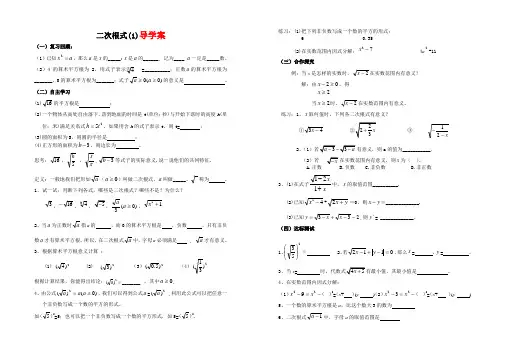 二次根式(1)导学案
(一)复习回顾:
(1)已知x² = a,那么a是x的_____;x是a的______, 记为____, a一定是_____数。
(2)4的算术平方根为2,用式子表示为 =__________;正数a的算术平方根为_______,0的算术平方根为_______;式子√a ≥ 0(a ≥ 0)的意义是 。
(二)自主学习
(1)√16的平方根是 ;
(2)一个物体从高处自由落下,落到地面的时间是t(单位:秒)与开始下落时的高度h(单位:米)满足关系式h = 5t²。如果用含h的式子表示t,则t= ;
(3)圆的面积为S,则圆的半径是 ;
(4)正方形的面积为b − 3,则边长为 。
思考:√16 , √(h/5) , √(s/π) , √(b − 3) 等式子的实际意义.说一说他们的共同特征.
定义: 一般地我们把形如√a(a ≥ 0)叫做二次根式,a叫做_____。√ 称为 。
1、试一试:判断下列各式,哪些是二次根式?哪些不是?为什么?
2、当a为正数时√a指a的 ,而0的算术平方根是 ,负数 ,只有非负数a才有算术平方根。所以,在二次根式√a中,字母a必须满足 , √a才有意义。
3、根据算术平方根意义计算 :
(1) (√4)² (2) (√3)² (3)(√0.5)² (4)(√(1/3))²
根据计算结果,你能得出结论: (√a)² = ________ ,其中a ≥ 0,
4、由公式(√a)² = a(a ≥ 0),我们可以得到公式a=(√a)² ,利用此公式可以把任意一个非负数写成一个数的平方的形式。
如(√5)²=5;也可以把一个非负数写成一个数的平方形式,如5=(√5)².
练习:(1)把下列非负数写成一个数的平方的形式:
6 0.35
(2)在实数范围内因式分解:x² − 7 4a²-11
(三)合作探究
例:当x是怎样的实数时,√(x − 2)在实数范围内有意义?
解:由x − 2 ≥ 0,得
x ≥ 2
当x ≥ 2时,√(x − 2)在实数范围内有意义。
练习:1、x取何值时,下列各二次根式有意义?
①√(3x − 4) ② ③
2、(1)若√(a − 3) − √(3 − a)有意义,则a的值为___________.
(2)若 在实数范围内有意义,则x为( )。
A.正数 B.负数 C.非负数 D.非正数
3、(1)在式子√(1 − 2x)/(1 + x)中,x的取值范围是____________.
(2)已知√(x² − 4)+√(2x + y)=0,则x − y = _____________.
(3)已知y = √(3 − x) + √(x − 3) − 2,则 = _____________。
(四)达标测试
1、 = 2、若√(2x − 1) + |y − 1| = 0,那么x = ,y = 。
3、当x= 时,代数式√(4x + 5)有最小值,其最小值是 。
4、在实数范围内因式分解:
(1)x² − 9 = x² − ( )²=(x+ )(x- )(2) x² − 3 = x² − ( )²=(x+ )(x- )
5、一个数的算术平方根是a,比这个数大3的数为
6、二次根式√(a − 1)中,字母a的取值范围是